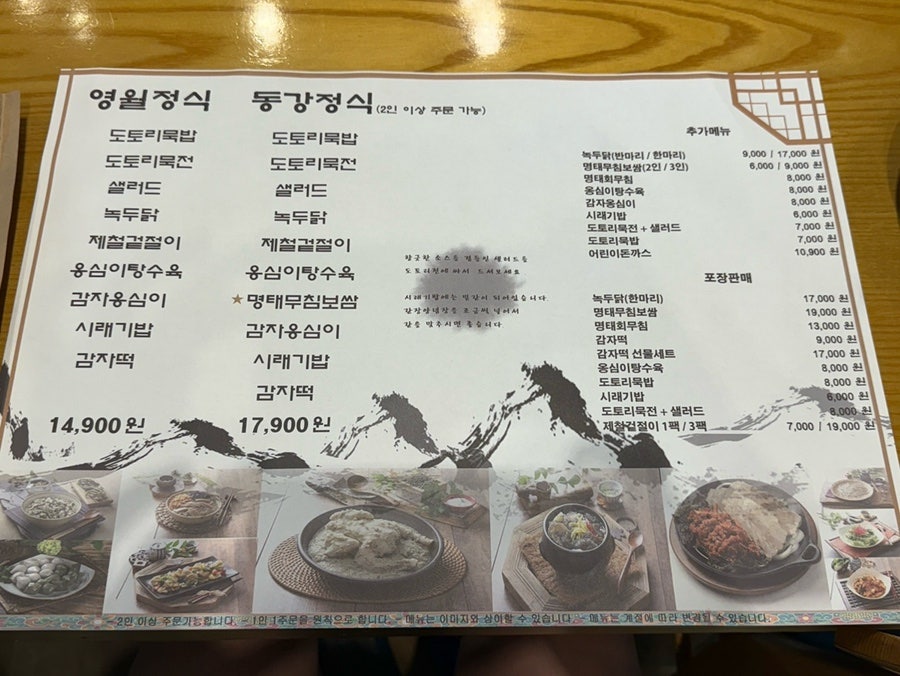 영월정식
도토리묵밥
도토리묵전
샐러드
녹두닭
제철겉절이
옹심이탕수육
감자옹심이
시래기밥
감자떡
14,900원
동강정식(2인 이상 주문 가능)
도토리묵밥
도토리묵전
샐러드
녹두닭
제철겉절이
옹심이탕수육
★명태무침보쌈
감자옹심이
시래기밥
감자떡
17,900원
향긋한 소스를 곁들인 샐러드를
도토리전에 싸서 드셔보세요
시래기밥에는 밑간이 되어있습니다.
간장양념장을 조금씩 넣어서
간을 맞추시면 좋습니다
추가메뉴
녹두닭(반마리 / 한마리) 9,000 / 17,000 원
명태무침보쌈(2인 / 3인) 6,000 / 9,000 원
명태회무침 8,000 원
옹심이탕수육 8,000 원
감자옹심이 8,000 원
시래기밥 6,000 원
도토리묵전 + 샐러드 7,000 원
도토리묵밥 7,000 원
어린이돈까스 10,900 원
포장판매
녹두닭(한마리) 17,000 원
명태무침보쌈 19,000 원
명태회무침 13,000 원
감자떡 9,000 원
감자떡 선물세트 17,000 원
옹심이탕수육 8,000 원
도토리묵밥 8,000 원
시래기밥 6,000 원
도토리묵전 + 샐러드 8,000 원
제철겉절이 1팩 / 3팩 7,000 / 19,000 원
- 2인 이상 주문가능합니다. - 1인 1주문을 원칙으로 합니다. - 메뉴는 이미지와 상이할 수 있습니다. - 메뉴는 계절에 따라 변경될 수 있습니다.